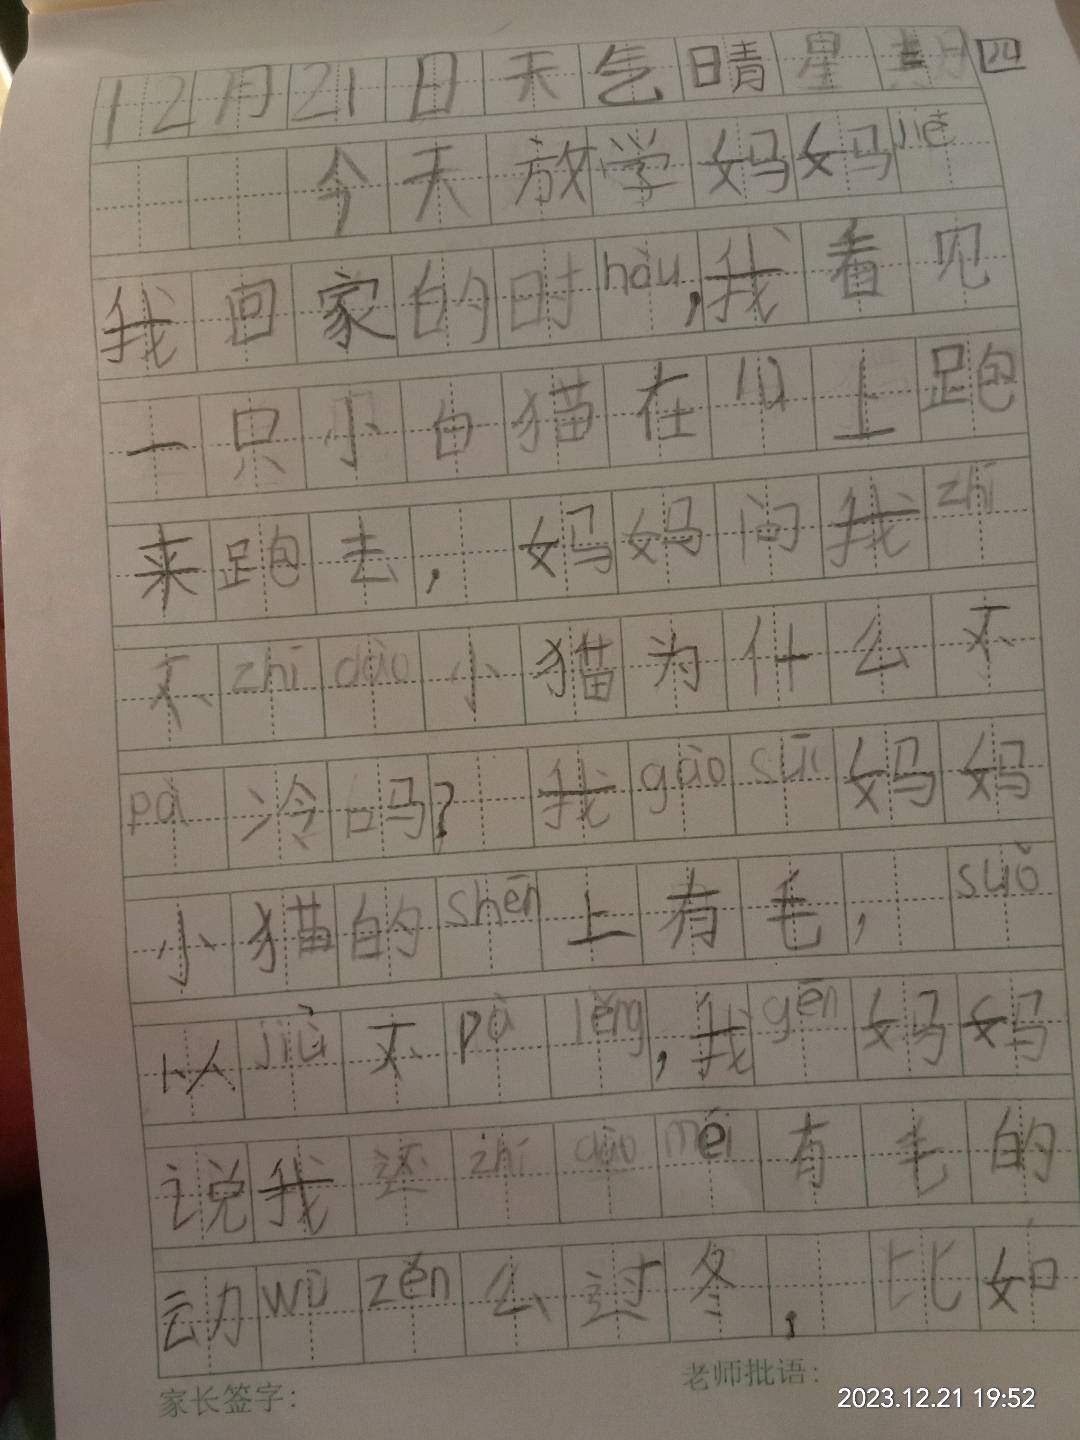 12月21日天气晴星期四
今天放学妈妈jiē
我回家的时hòu,我看见
一只小白猫在山上跑
来跑去,妈妈问我zhī
不zhī dào小猫为什么不
pà冷吗?我gào sù妈妈
小猫的shēn上有毛,suǒ
以jiù不pà lěng,我gēn妈妈
说我还zhī dào méi有毛的
动wù zěn么过冬,比如
家长签字:
老师批语:
2023.12.21 19:52